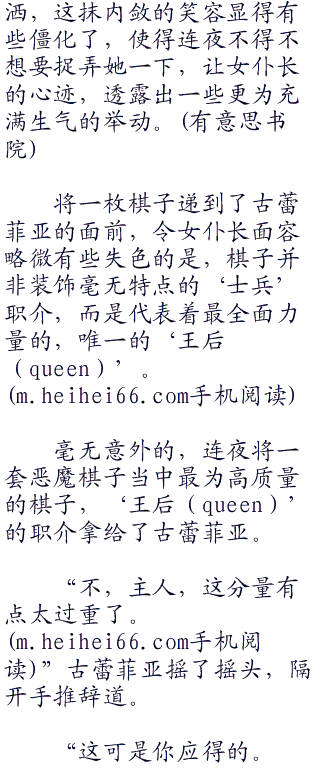 洒，这抹内敛的笑容显得有
些僵化了，使得连夜不得不
想要捉弄她一下，让女仆长
的心迹，透露出一些更为充
满生气的举动。(有意思书
院)
将一枚棋子递到了古蕾
菲亚的面前，令女仆长面容
略微有些失色的是，棋子并
非装饰毫无特点的‘士兵’
职介，而是代表着最全面力
量的，唯一的‘王后
（queen）’。
(m.heihei66.com手机阅读)
毫无意外的，连夜将一
套恶魔棋子当中最为高质量
的棋子，‘王后（queen）’
的职介拿给了古蕾菲亚。
“不，主人，这分量有
点太过重了。
(m.heihei66.com手机阅
读)”古蕾菲亚摇了摇头，隔
开手推辞道。
“这可是你应得的。